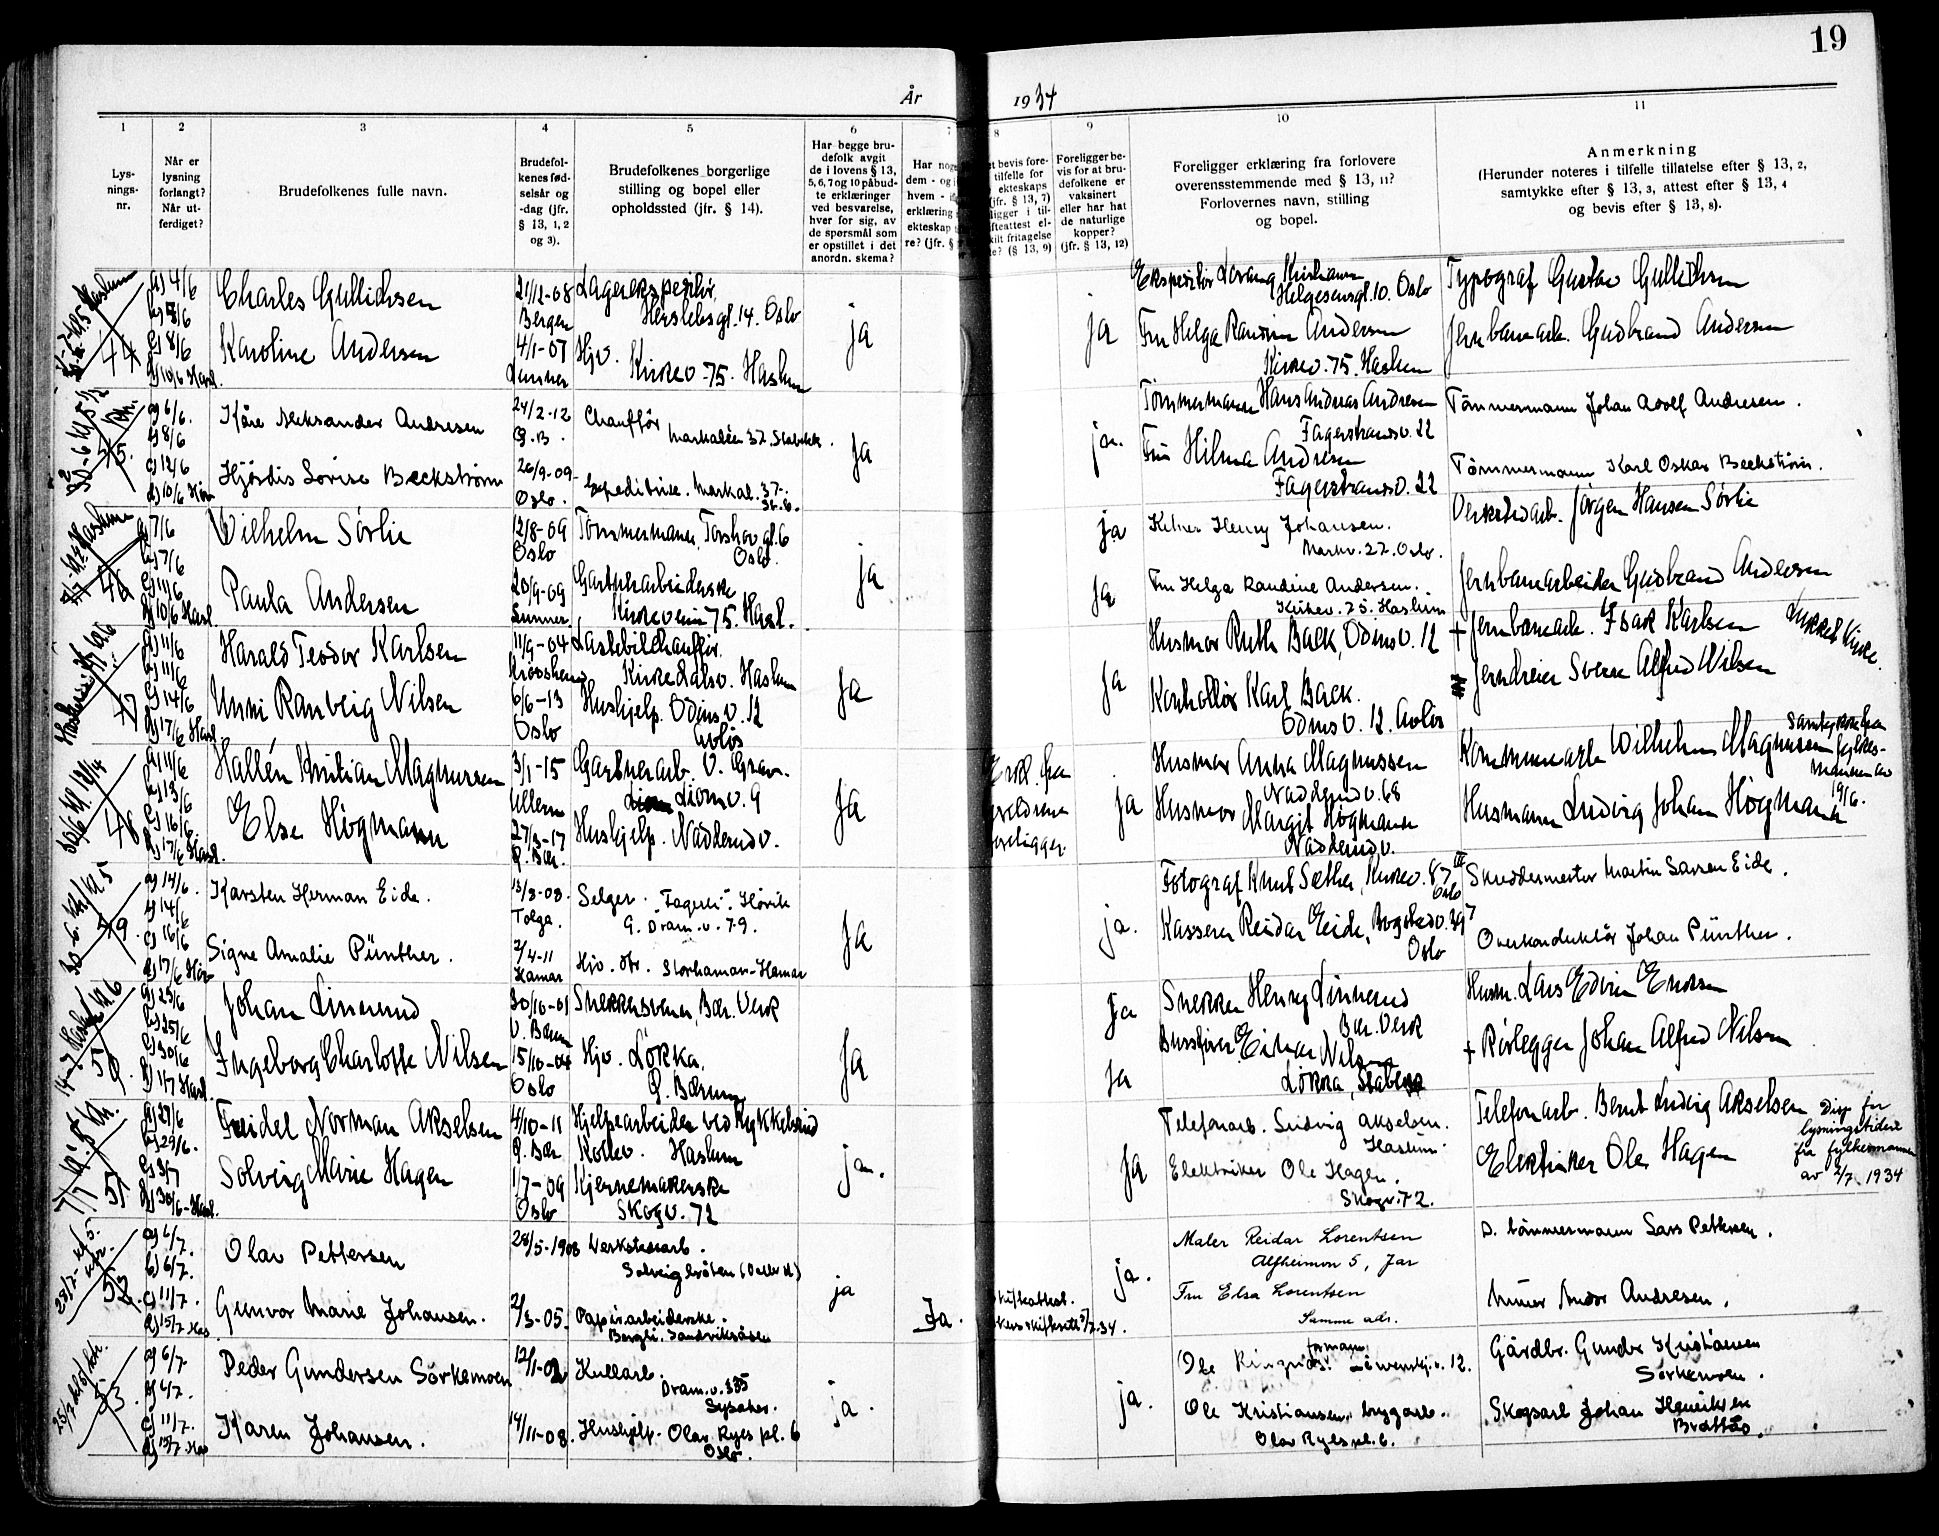 19
År 1934
1
2
3
4
5
6
7
8
9
10
11
Lys-
nings-
nr.
Når er
lysning
forlangt?
Når ut-
ferdiget?
Brudefolkenes fulle navn.
Brudefol-
kenes fød-
selsår og
-dag (jfr.
§ 13, 1, 2
og 3).
Brudefolkenes borgerlige
stilling og bopel eller
opholdssted (jfr. § 14).
Har begge bru-
defolk avgit
de i lovens § 13,
5, 6, 7 og 10 påbud-
te erklæringer
ved besvarelse,
hver for sig, av
de spørsmål som
er opstillet i det
anordn. skema?
Har nog
dem - og i
hvem - i
erklæring
ekteskap
re? (jfr. §
t bevis fore-
tilfelle for
ekteskaps
(jfr. § 13, 7)
ligger i til-
ifteattest el-
kilt fritagelse
e? (§ 13, 9)
Foreligger be-
vis for at bru-
defolkene er
vaksinert
eller har hat
de naturlige
kopper?
(jfr. § 13, 12)
Foreligger erklæring fra forlovere
overensstemmende med § 13, 11?
Forlovernes navn, stilling
og bopel.
Anmerkning
(Herunder noteres i tilfelle tillatelse efter § 13, 2,
samtykke efter § 13, 3, attest efter § 13, 4
og bevis efter § 13, 8).
44
a) 4/6
b) 8/6
c) 8/6
d) 10/6 Hasl.
Charles Gullichsen
Karoline Andersen
21/12-08
Bergen
4/1-07
Lunner
Lagerekspeditør,
Herslebsgt. 14. Oslo
Hjv.
Kirkev. 75. Haslum
ja
ja
Helgesensgt. 10. Oslo
Fru Helga Randine Andersen
Kirkev. 75. Haslum
Typograf Gustav Gullichsen
Jernbanearb. Gudbrand Andersen
45.
a) 6/6.
b) 8/6
c) 12/6
Kåre Aleksander Andresen
Hjørdis Sovise Beckstrøm
24/2-12
Ø.B.
26/9-09
Oslo.
Chauffør
Markaléen 37. Stabekk.
Expeditrise. Markal. 37.
St.b.
ja
ja.
Tømmermann Hans Andreas Andresen
Fagerstrandsv. 22
Fru Hilma Andresen
Fagerstrandsv. 22
Tømmermann Johan Adolf Andresen.
Tømmermann Karl Oskar Beckstrøm.
46
a) 7/6
b) 7/6
c) 11/6
d) 10/6 Hasl.
Wilhelm Sørlie
Paula Andersen
12/8-09
Oslo
20/9-09
Lunner
Tømmermann, Torshov gt. 6
Oslo.
Gartneriarbeiderske
Kirkeveien 75. Hasl.
ja
ja
ja
Kelner Henry Johansen.
Markv. 27. Oslo.
Fru Helga Randine Andersen.
Kirkev. 75. Haslum
Verkstedarb. Jørgen Hansen Sørlie
Jernbanearbeider Gudbrand Andersen
47
a) 11/6
b) 11/6
c) 14/6
d) 17/6 Hasl
Harald Teodor Karlsen
Unni Ranveig Nilsen
11/9-04
6/6-13
Oslo
Lastebilchauffør.
Kirkedalsv. Haslum
Hushjelp. Odinsv. 12
Avløs
ja
ja
Husmor Ruth Back, Odinsv. 12
Kontrollør Karl Back.
Odinsv. 12. Avløs
+ Jernbanearb. Isak Karlsen
Jerndreier Sverre Alfred Nilsen
48
a) 11/6
b) 13/6
c) 16/6
d) 17/6 Hasl.
Hallén Kristian Magnussen
Else Høgmann
3/1-15
Ullern
27/3-17
Ø. Bær.
Gartnerarb. V. Grav.
Liomv. 9
Hushjelp. Nadderudv.
ja
foreligger
ja
Husmor Anna Magnussen
Nadderudv. 68
Husmor Margit Høgmann
Nadderudv.
Kommunearb. Wilhelm Magnussen
Husmann Ludvig Johan Høgmann
Samtykke fra
fylkes-
mannen av
19/6.
49
a) 14/6.
b) 14/6
c) 16/6
Karsten Herman Eide.
Signe Amalie Pünther.
13/3-08.
Tolga.
2/4-11
Hamar
Selger. "Fagerli". Høvik
G. Dram. v. 79.
Hjv. str. Storhamar-Hamar
ja
ja.
Fotograf Knut Sæther, Kirkev. 87 III
Oslo
Kasserer Reidar Eide, Bogstadv. 39
Oslo
Skreddermester Martin Larsen Eide.
Overkonduktør Johan Pünther.
50.
a) 25/6
b) 25/6
c) 30/6
d) 1/7 Hasl.
Johan Linnerud
Ingeborg Charlotte Nilsen
30/10-01
V. Bærum
15/10-04
Oslo
Snekkersvenn, Bær. Verk
Hjv. Løkka,
Ø. Bærum
ja
ja
ja
Snekker Henry Linnerud
Bær. Verk
Einar Nilsen
Løkka, Stabekk
Husm. Lars Edvin Eriksen
+ Rørlegger Johan Alfred Nilsen
51
a) 27/6
b) 29/6.
c) 3/7
d) 30/6-Hasl.
Freidel Norman Akselsen
Solveig Marie Hagen
4/10-11
Ø. Bær
1/7-09
Oslo
Hjelpearbeider ved Rykkelsrud
Haslum
Kjernemakerske
Skogv. 72
ja.
ja
Telefonarb. Ludvig Akselsen.
Haslum.
Elektriker Ole Hagen.
Skogv. 72.
Telefonarb. Bernt Ludvig Akselsen
Elektriker Ole Hagen
Disp. for
lysningstiden
fra fylkesmannen
av 2/7. 1934
52.
a) 6/7.
b) 6/7.
c) 11/7.
d) 15/7 Has
Olav Pettersen
Gunvor Marie Johansen.
28/5-1908
2/3-05.
Verkstedarb.
Papirarbeiderske.
Bergli. Sandviksåsen
ja
Ja.
ja.
Maler Reidar Lorentsen
Alfheimvn 5, Jar
Fru Elsa Lorentsen
Samme adr.
D. tømmermann Lars Pettersen.
Murer Andor Andresen.
53
a) 6/7.
b) 6/7.
c) 11/7.
d) 15/7 Has
Peder Gundersen Sørkemoen
Karen Johansen.
12/1-02
14/11-08.
Kullarb.
Dram. v. 335
Lysaker.
Hushjelp. Olav Ryes pl. 6
Oslo.
ja.
ja.
formann
Ole Kristiansen, bryggarb.
Olav Ryes pl. 6.
Gårdbr. Gunder Kristiansen
Sørkemoen.
Skogsarb. Johan Henriksen
Bråttås.